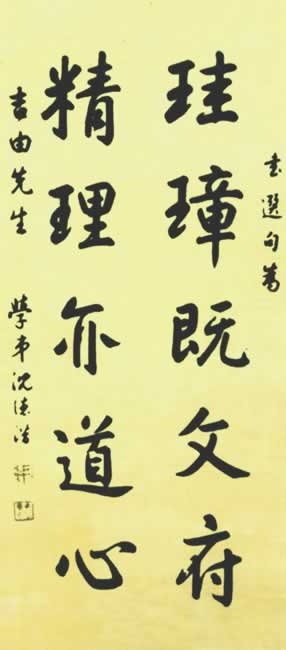 書選句為
珪璋既文府
精理亦道心
吉由先生
學弟沈德潜